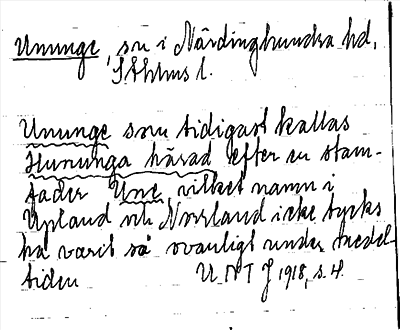 Ununge, sn i Närdinghundra hd,
Sthlms l.
Ununge som tidigast kallas
Hununga härad efter en stam-
fader Une vilket namn i
Upland och Norrland icke tycks
ha varit så ovanligt under medel-
tiden U N T J 1918, s. 4.